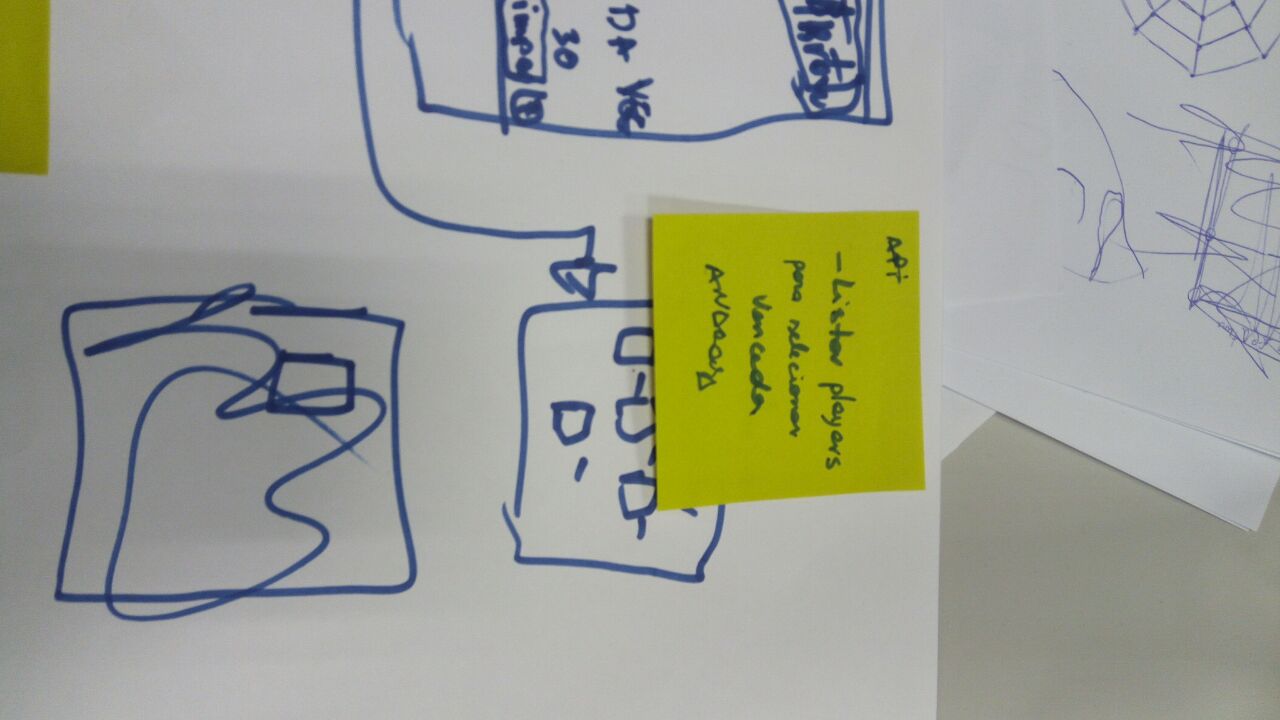 API
- Listar players
para selecionar
vencedor
ANDROID
DA VEZ
30